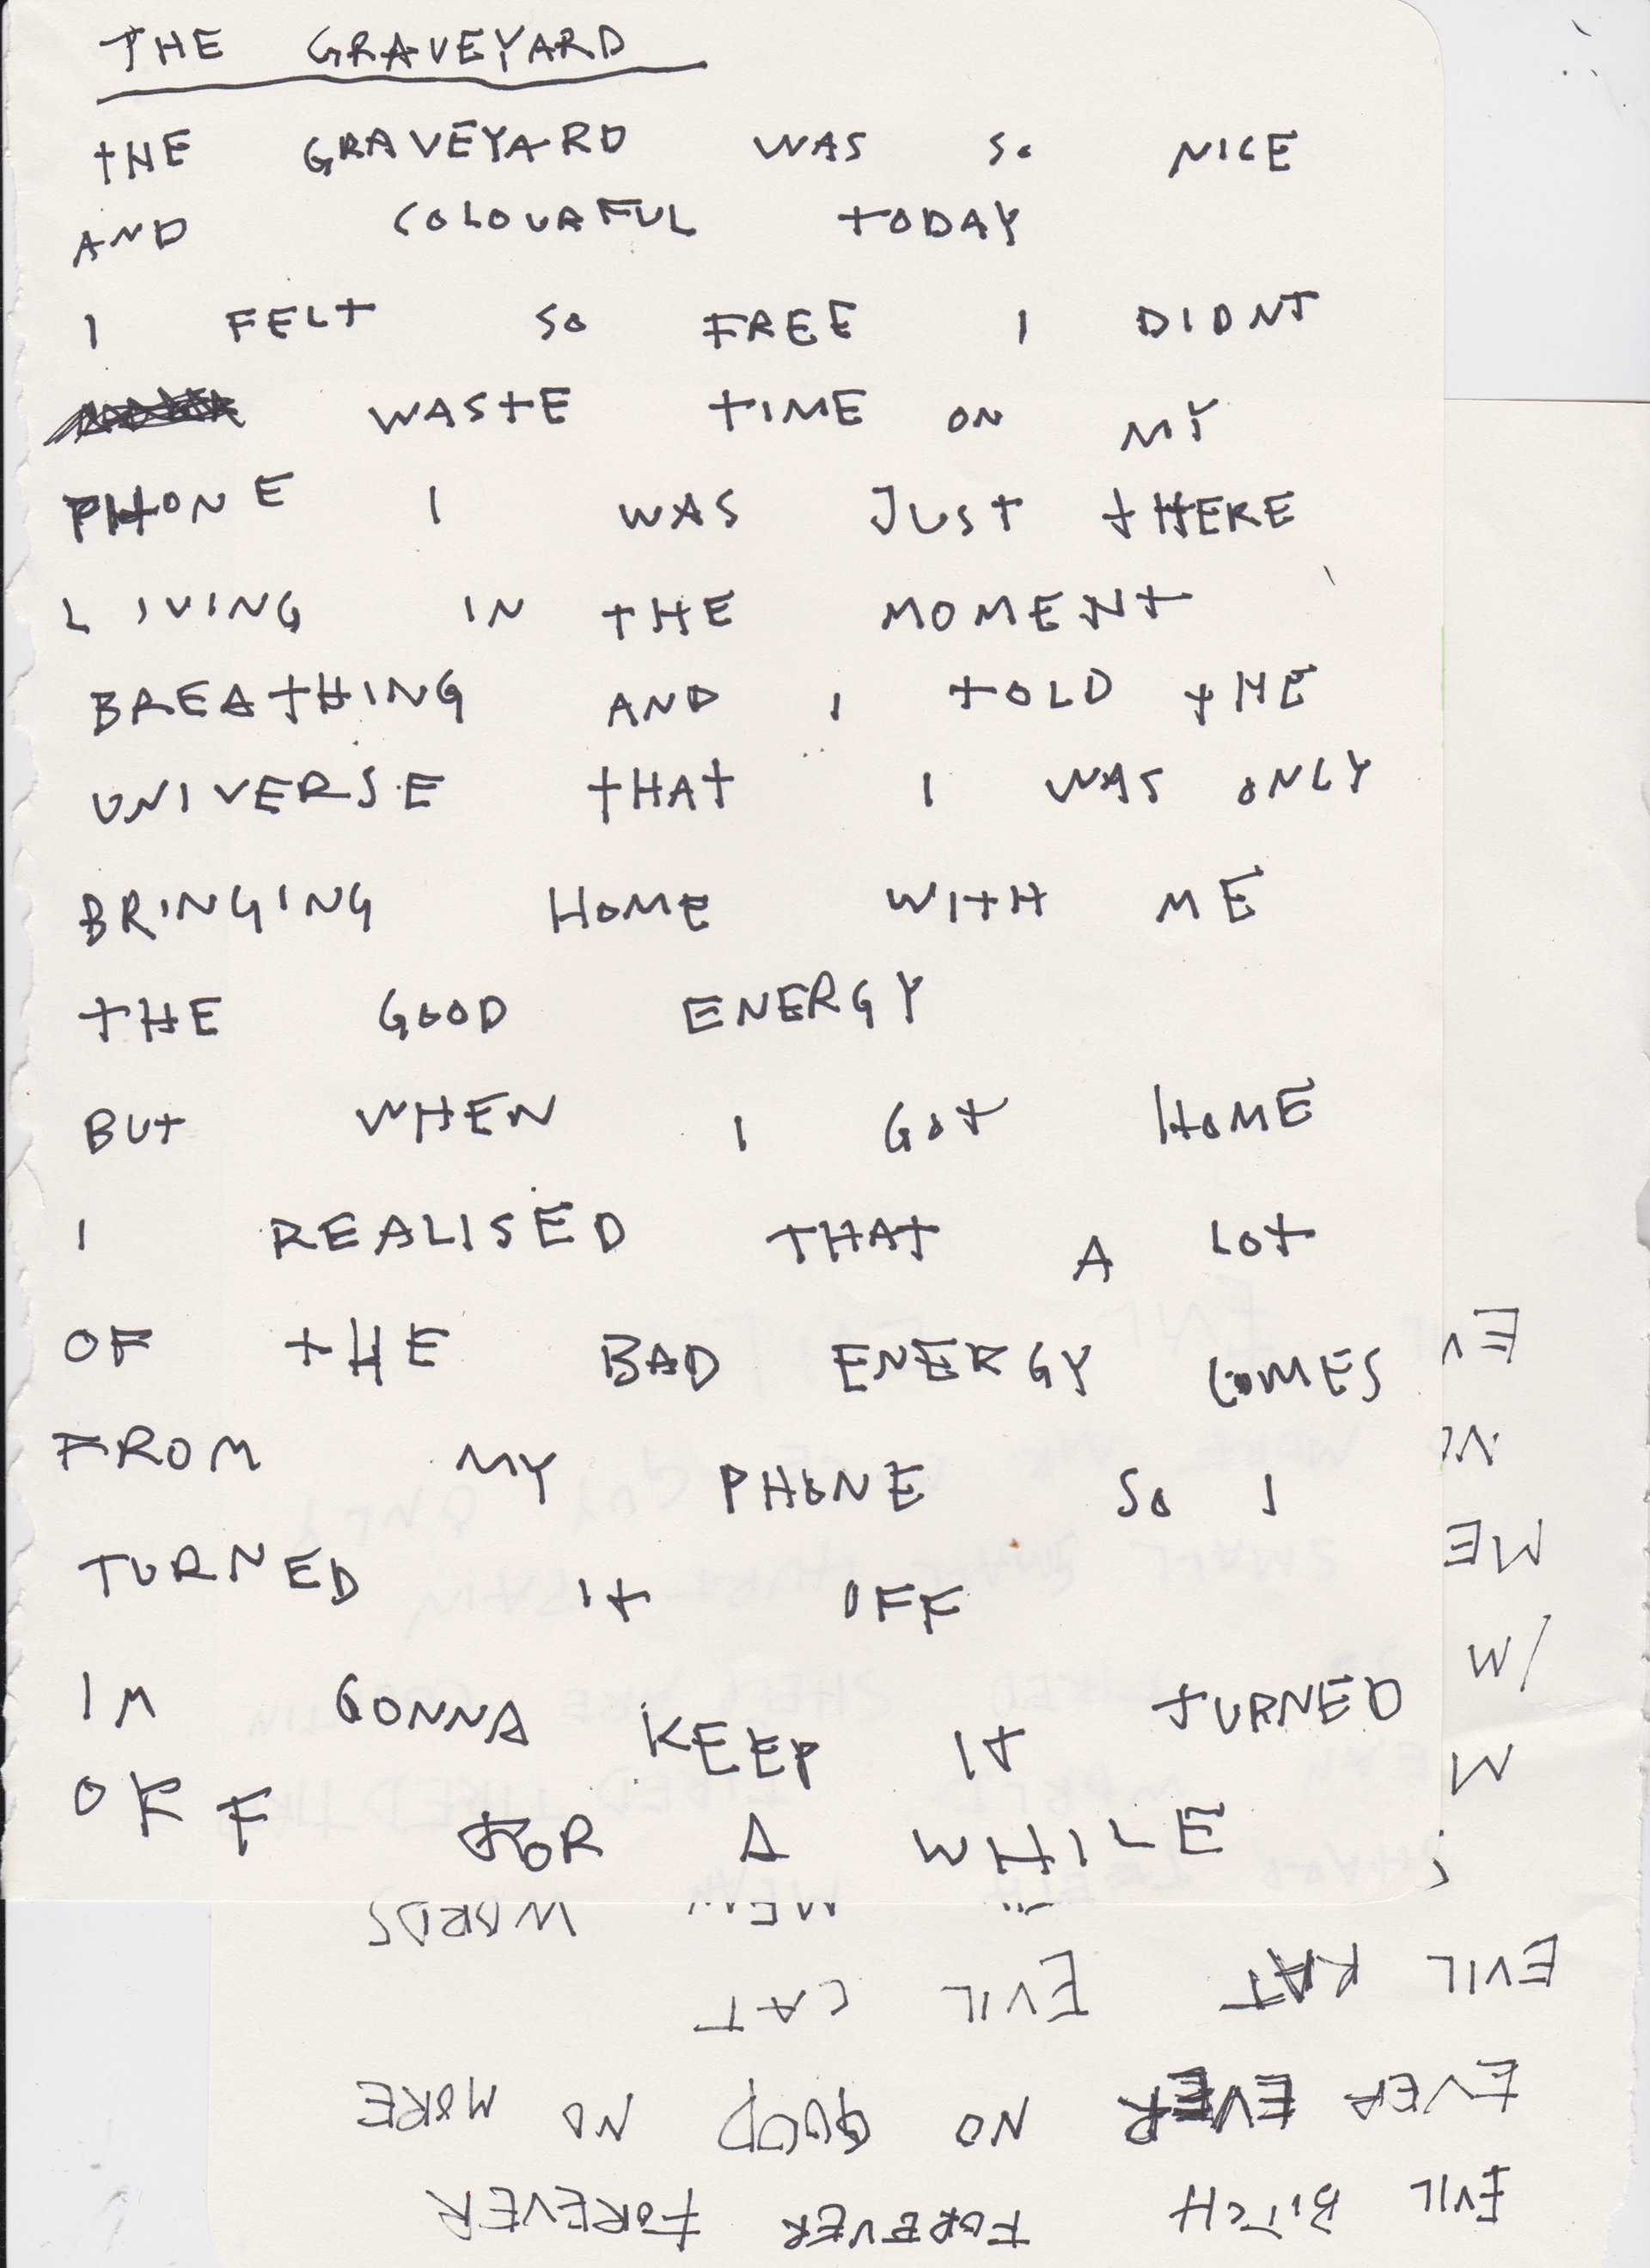 THE GRAVEYARD
THE GRAVEYARD WAS SO NICE
AND COLOURFUL TODAY
I FELT SO FREE I DIDNT
WASTE TIME ON MY
PHONE I WAS JUST THERE
LIVING IN THE MOMENT
BREATHING AND I TOLD THE
UNIVERSE THAT I WAS ONLY
BRINGING HOME WITH ME
THE GOOD ENERGY
BUT WHEN I GOT HOME
I REALISED THAT A LOT
OF THE BAD ENERGY COMES
FROM MY PHONE SO I
TURNED IT OFF
IM GONNA KEEP IT TURNED
OFF FOR A WHILE
EVIL BITCH FOREVER FOREVER
EVER EVER NO GOOD NO MORE
EVIL RAT EVIL CAT
WORDS
W/
ME